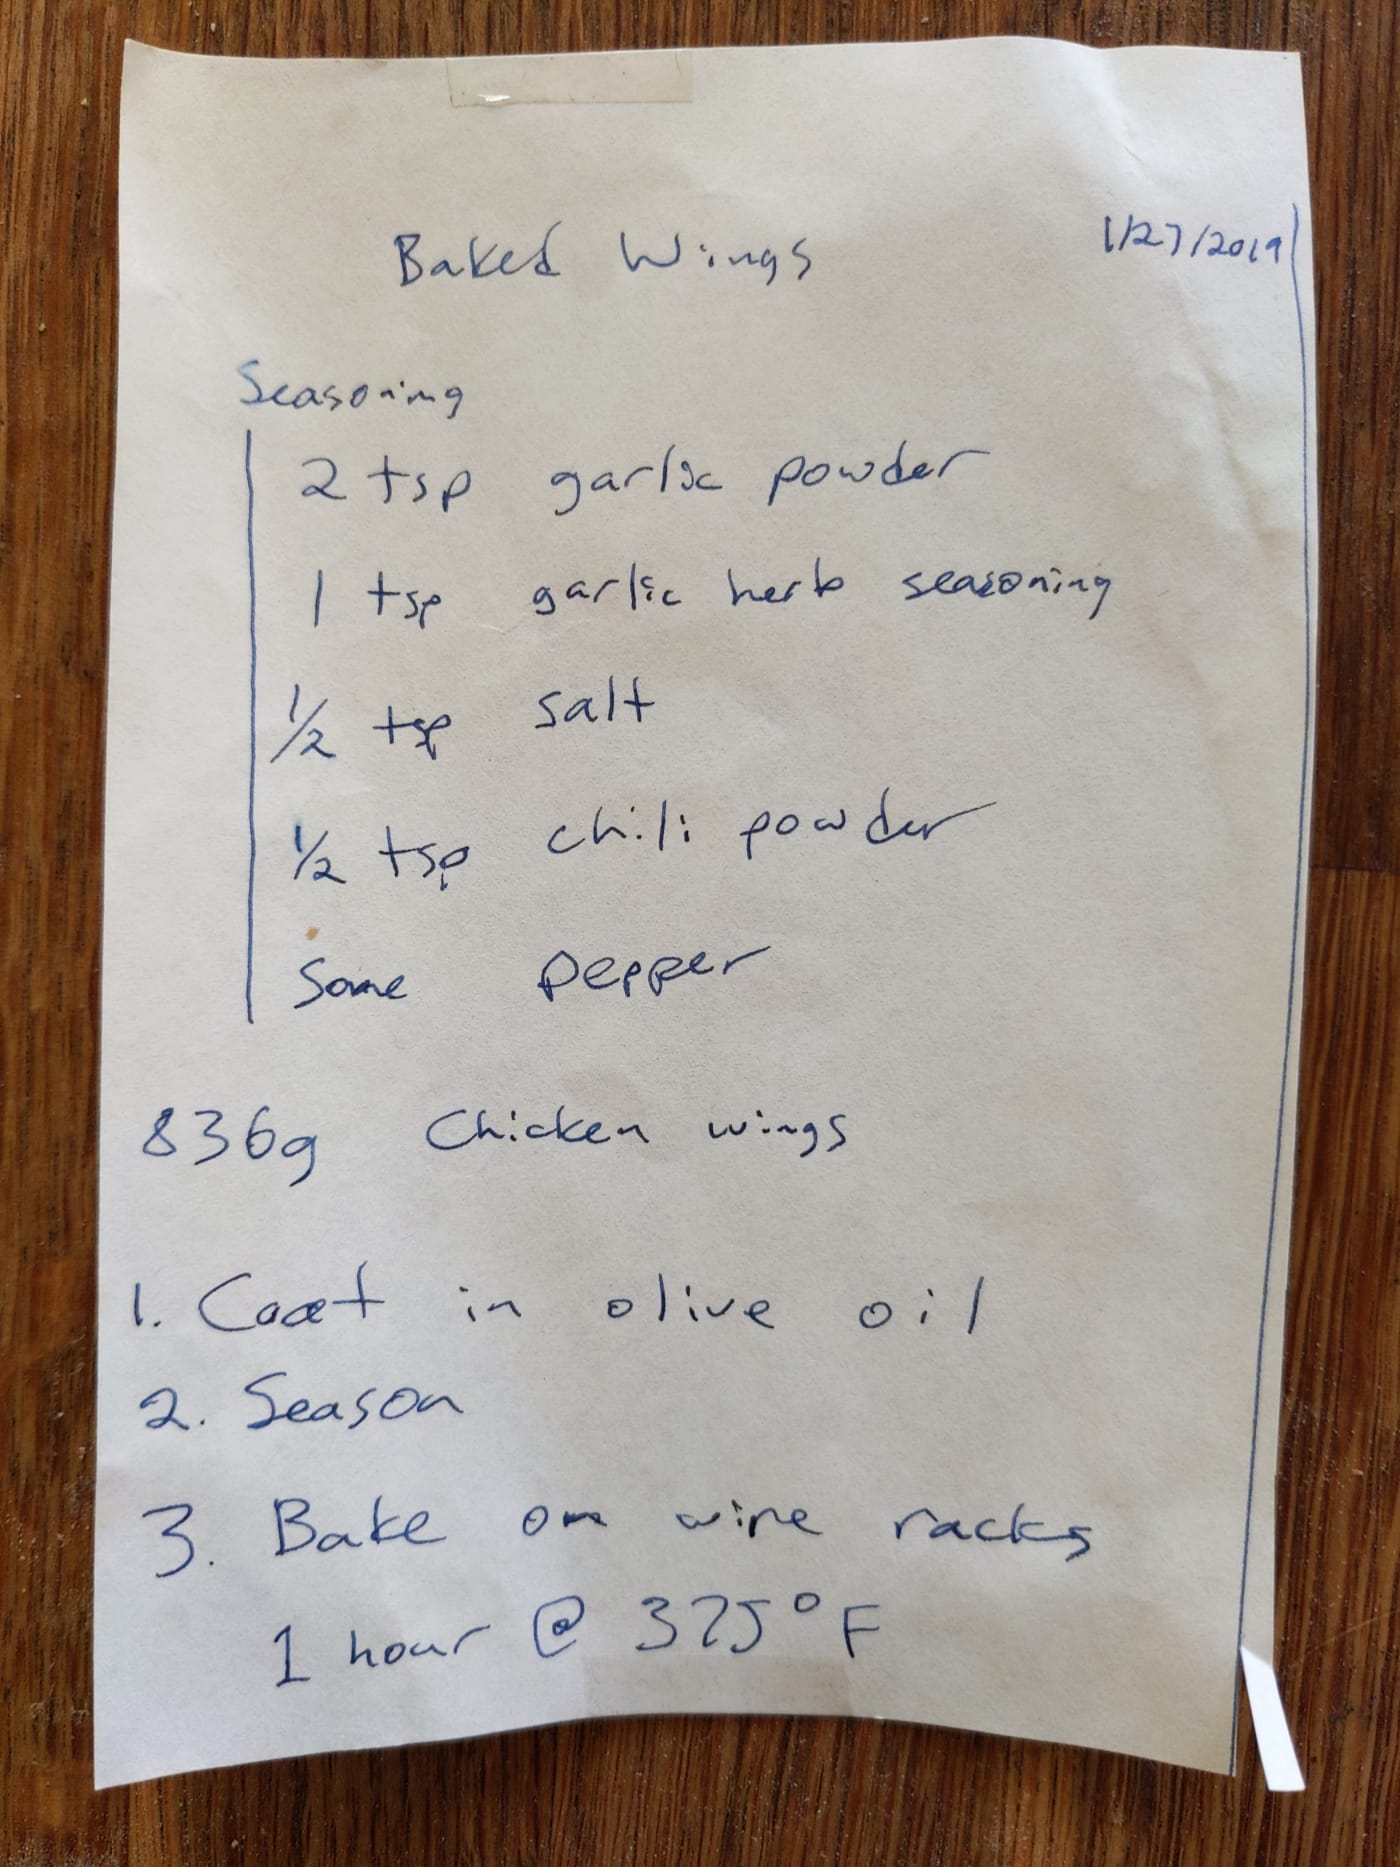 Baked Wings 1/27/2019
Seasoning
2 tsp garlic powder
1 tsp garlic herb seasoning
1/2 tsp salt
1/2 tsp chili powder
Some pepper
836g Chicken wings
1. Coat in olive oil
2. Season
3. Bake on wire racks
1 hour @ 375°F